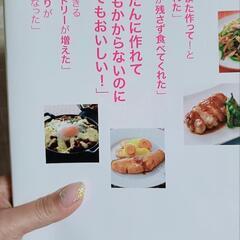 た作って！と
れた」
が残さず食べてくれた」
たんに作れて
もかからないのに
てもおいしい！」
きる
トリーが増えた」
りが
なった」